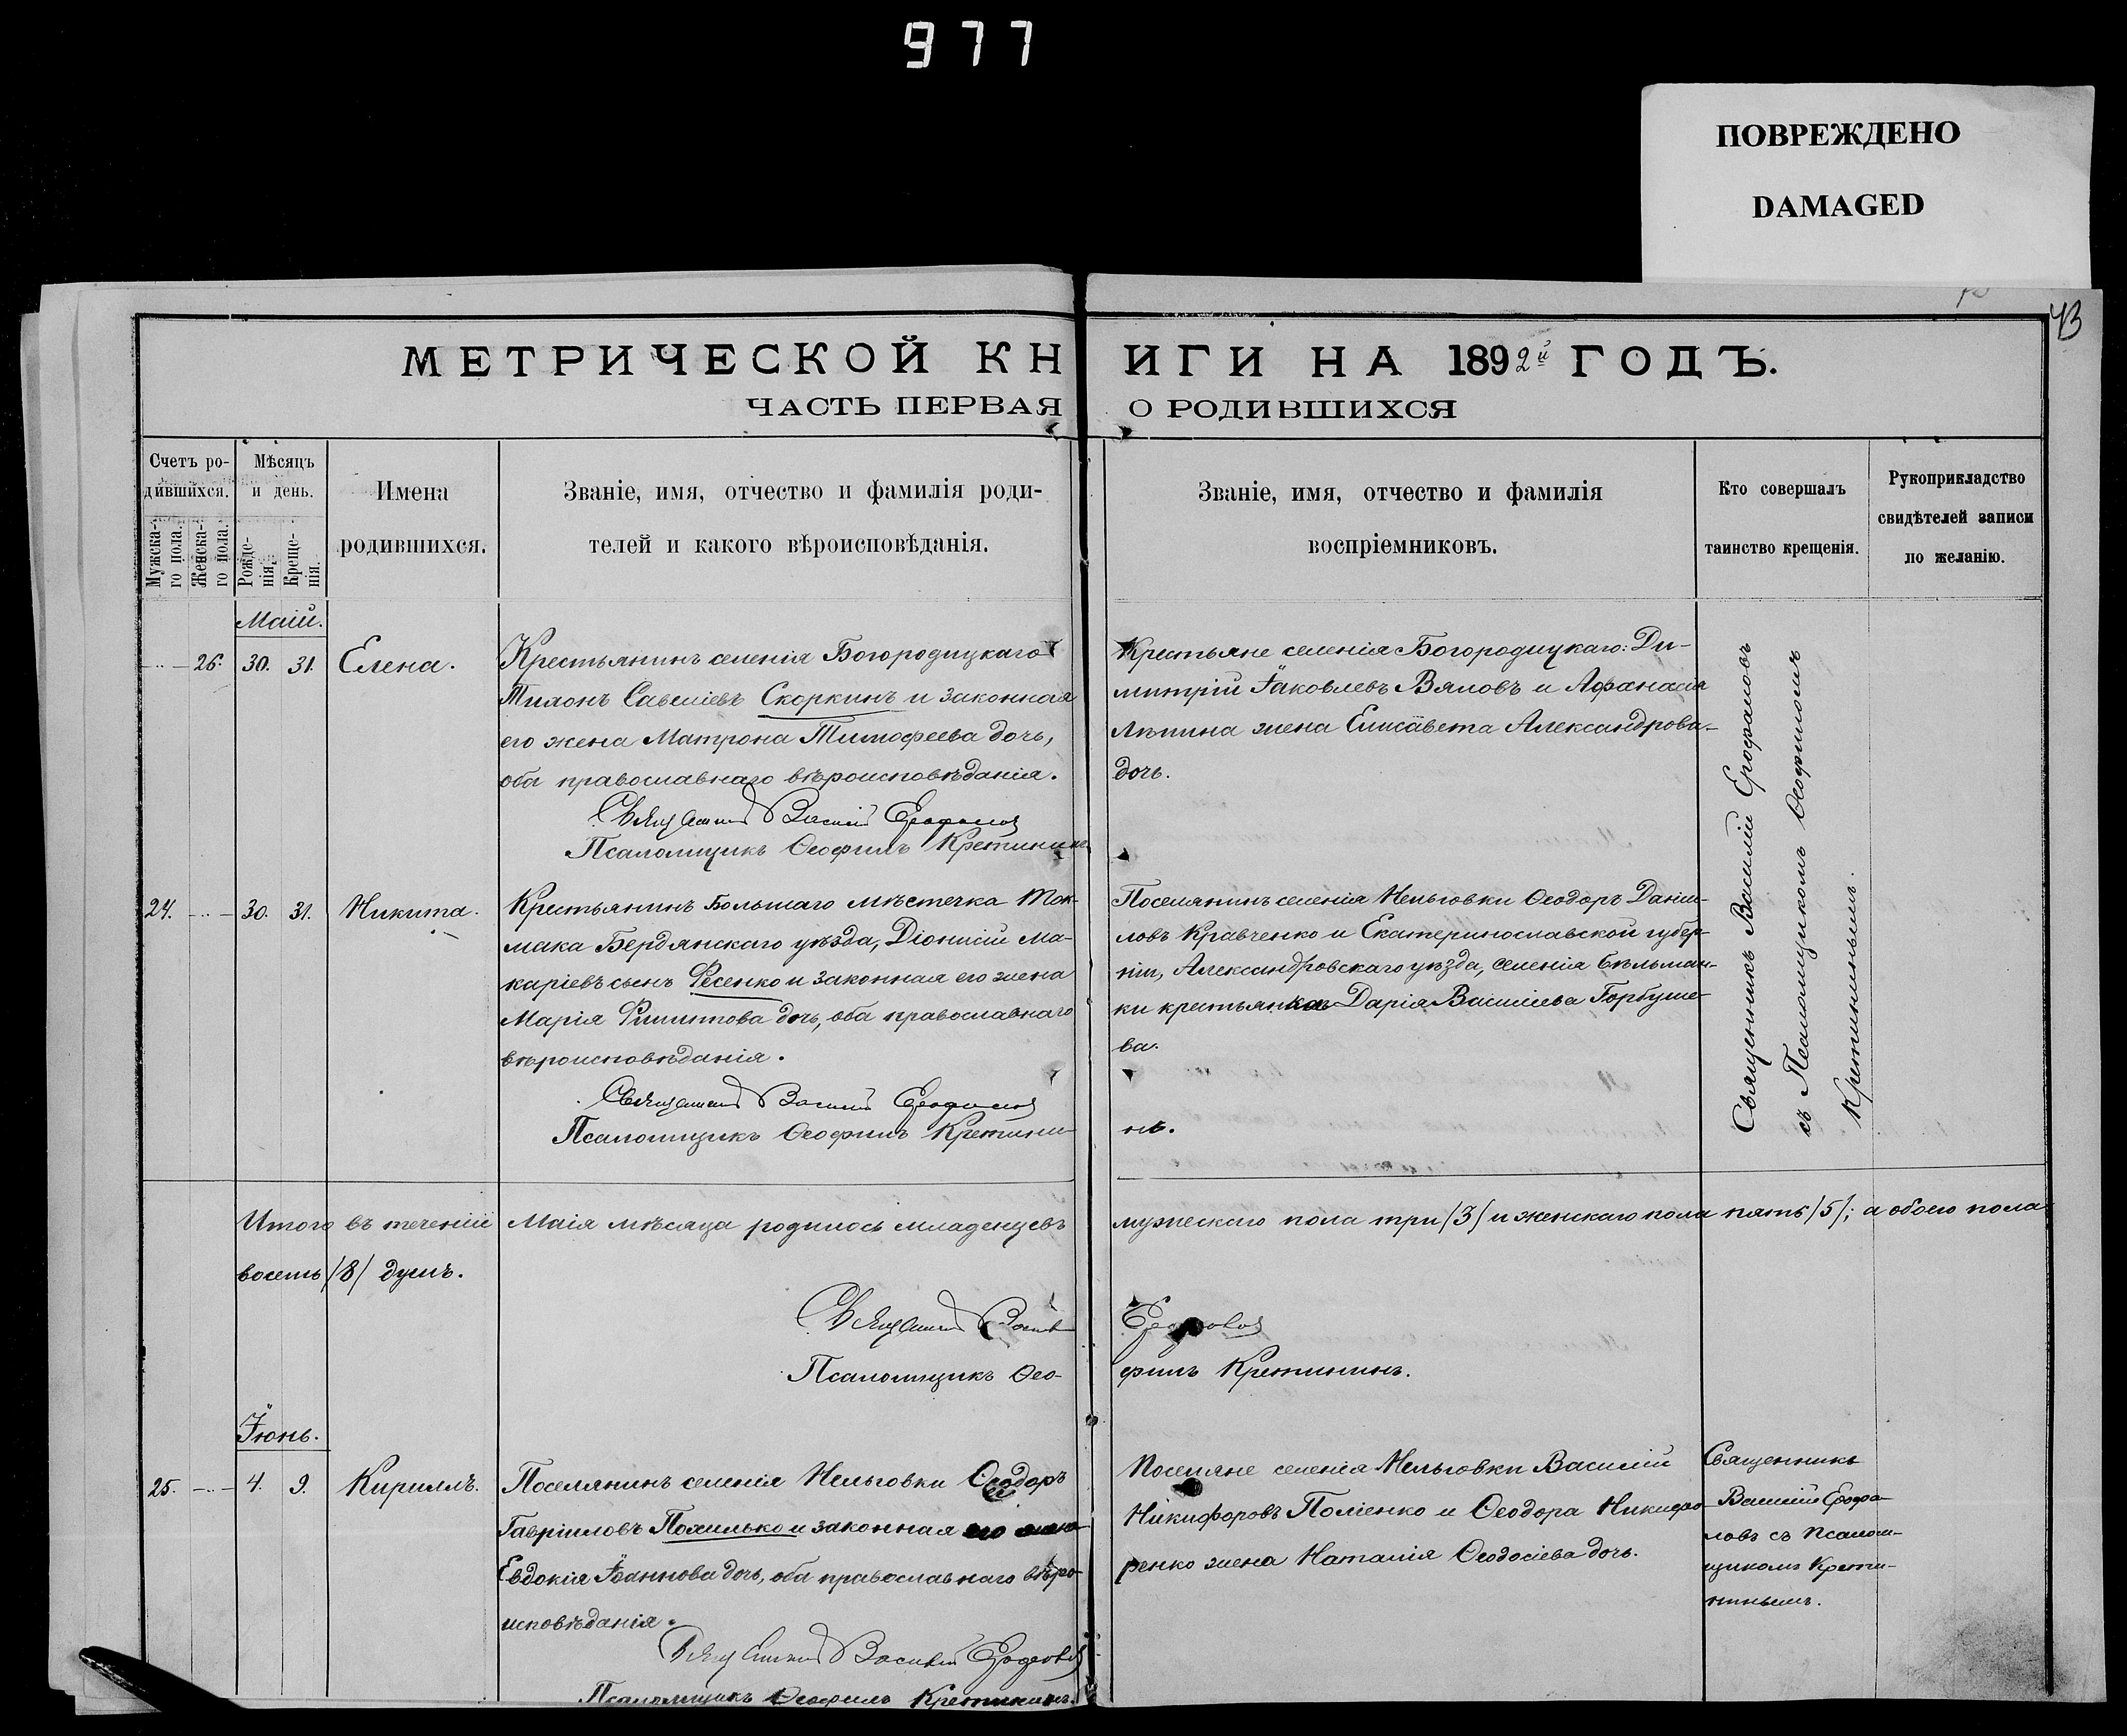 977
ПОВРЕЖДЕНО
DAMAGED
43
МЕТРИЧЕСКОЙ КНИГИ НА 1892й ГОДЪ.
ЧАСТЬ ПЕРВАЯ О РОДИВШИХСЯ
Счетъ ро-
дившихся.
Мужска-
го пола.
Женска-
го пола.
Мѣсяцъ
и день.
Рожде-
нія.
Креще-
нія.
Имена
родившихся.
Званіе, имя, отчество и фамилія роди-
телей и какого вѣроисповѣданія.
Званіе, имя, отчество и фамилія
воспріемниковъ.
Кто совершалъ
таинство крещенія.
Рукоприкладство
свидѣтелей записи
по желанію.
Маій.
26. 30. 31. Елена.
Крестьянинъ селенія Богородицкаго
Тихонъ Савеліевъ Скоркинъ и законная
его жена Матрона Тимофеева дочь,
оба православнаго вѣроисповѣданія.
Священникъ Василій Ерофаловъ
Псаломщикъ Ѳеофилъ Кретининъ
Крестьяне селенія Богородицкаго: Ди-
митрій Іаковлевъ Вяловъ и Афанасія
Лѣпина жена Елисавета Александрова
дочь.
Священникъ Василій Ерофаловъ
съ Псаломщикомъ Ѳеофиломъ
Кретининымъ.
24. 30. 31. Никита.
Крестьянинъ Большаго мѣстечка Ток-
мака Бердянскаго уѣзда, Діонисій Ма-
каріевъ сынъ Фесенко и законная его жена
Марія Филиппова дочь, оба православнаго
вѣроисповѣданія.
Священникъ Василій Ерофаловъ
Псаломщикъ Ѳеофилъ Кретининъ.
Поселянинъ селенія Нельговки Ѳеодоръ Даніи-
ловъ Кравченко и Екатеринославской губер-
ніи, Александровскаго уѣзда, селенія Бѣльман-
ки крестьянка Дарія Василіева Горбуше-
ва.
Итого въ теченіи Маія мѣсяца родилось младенцевъ мужескаго пола три /3/ и женскаго пола пять /5/; а обоего пола
восемь /8/ душъ.
Священникъ Василій Ерофаловъ
Псаломщикъ Ѳеофилъ Кретининъ.
Іюнь.
25. 4. 9. Кириллъ.
Поселянинъ селенія Нельговки Ѳеодоръ
Гавріиловъ Похилько и законная его жена
Евдокія Іоаннова дочь, оба православнаго вѣро-
исповѣданія.
Священникъ Василій Ерофаловъ
Псаломщикъ Ѳеофилъ Кретининъ.
Поселяне селенія Нельговки Василій
Никифоровъ Поліенко и Ѳеодора Никифо-
ренко жена Наталія Ѳеодосіева дочь.
Священникъ
Василій Ерофа-
ловъ съ Псалом-
щикомъ Крети-
нинымъ.